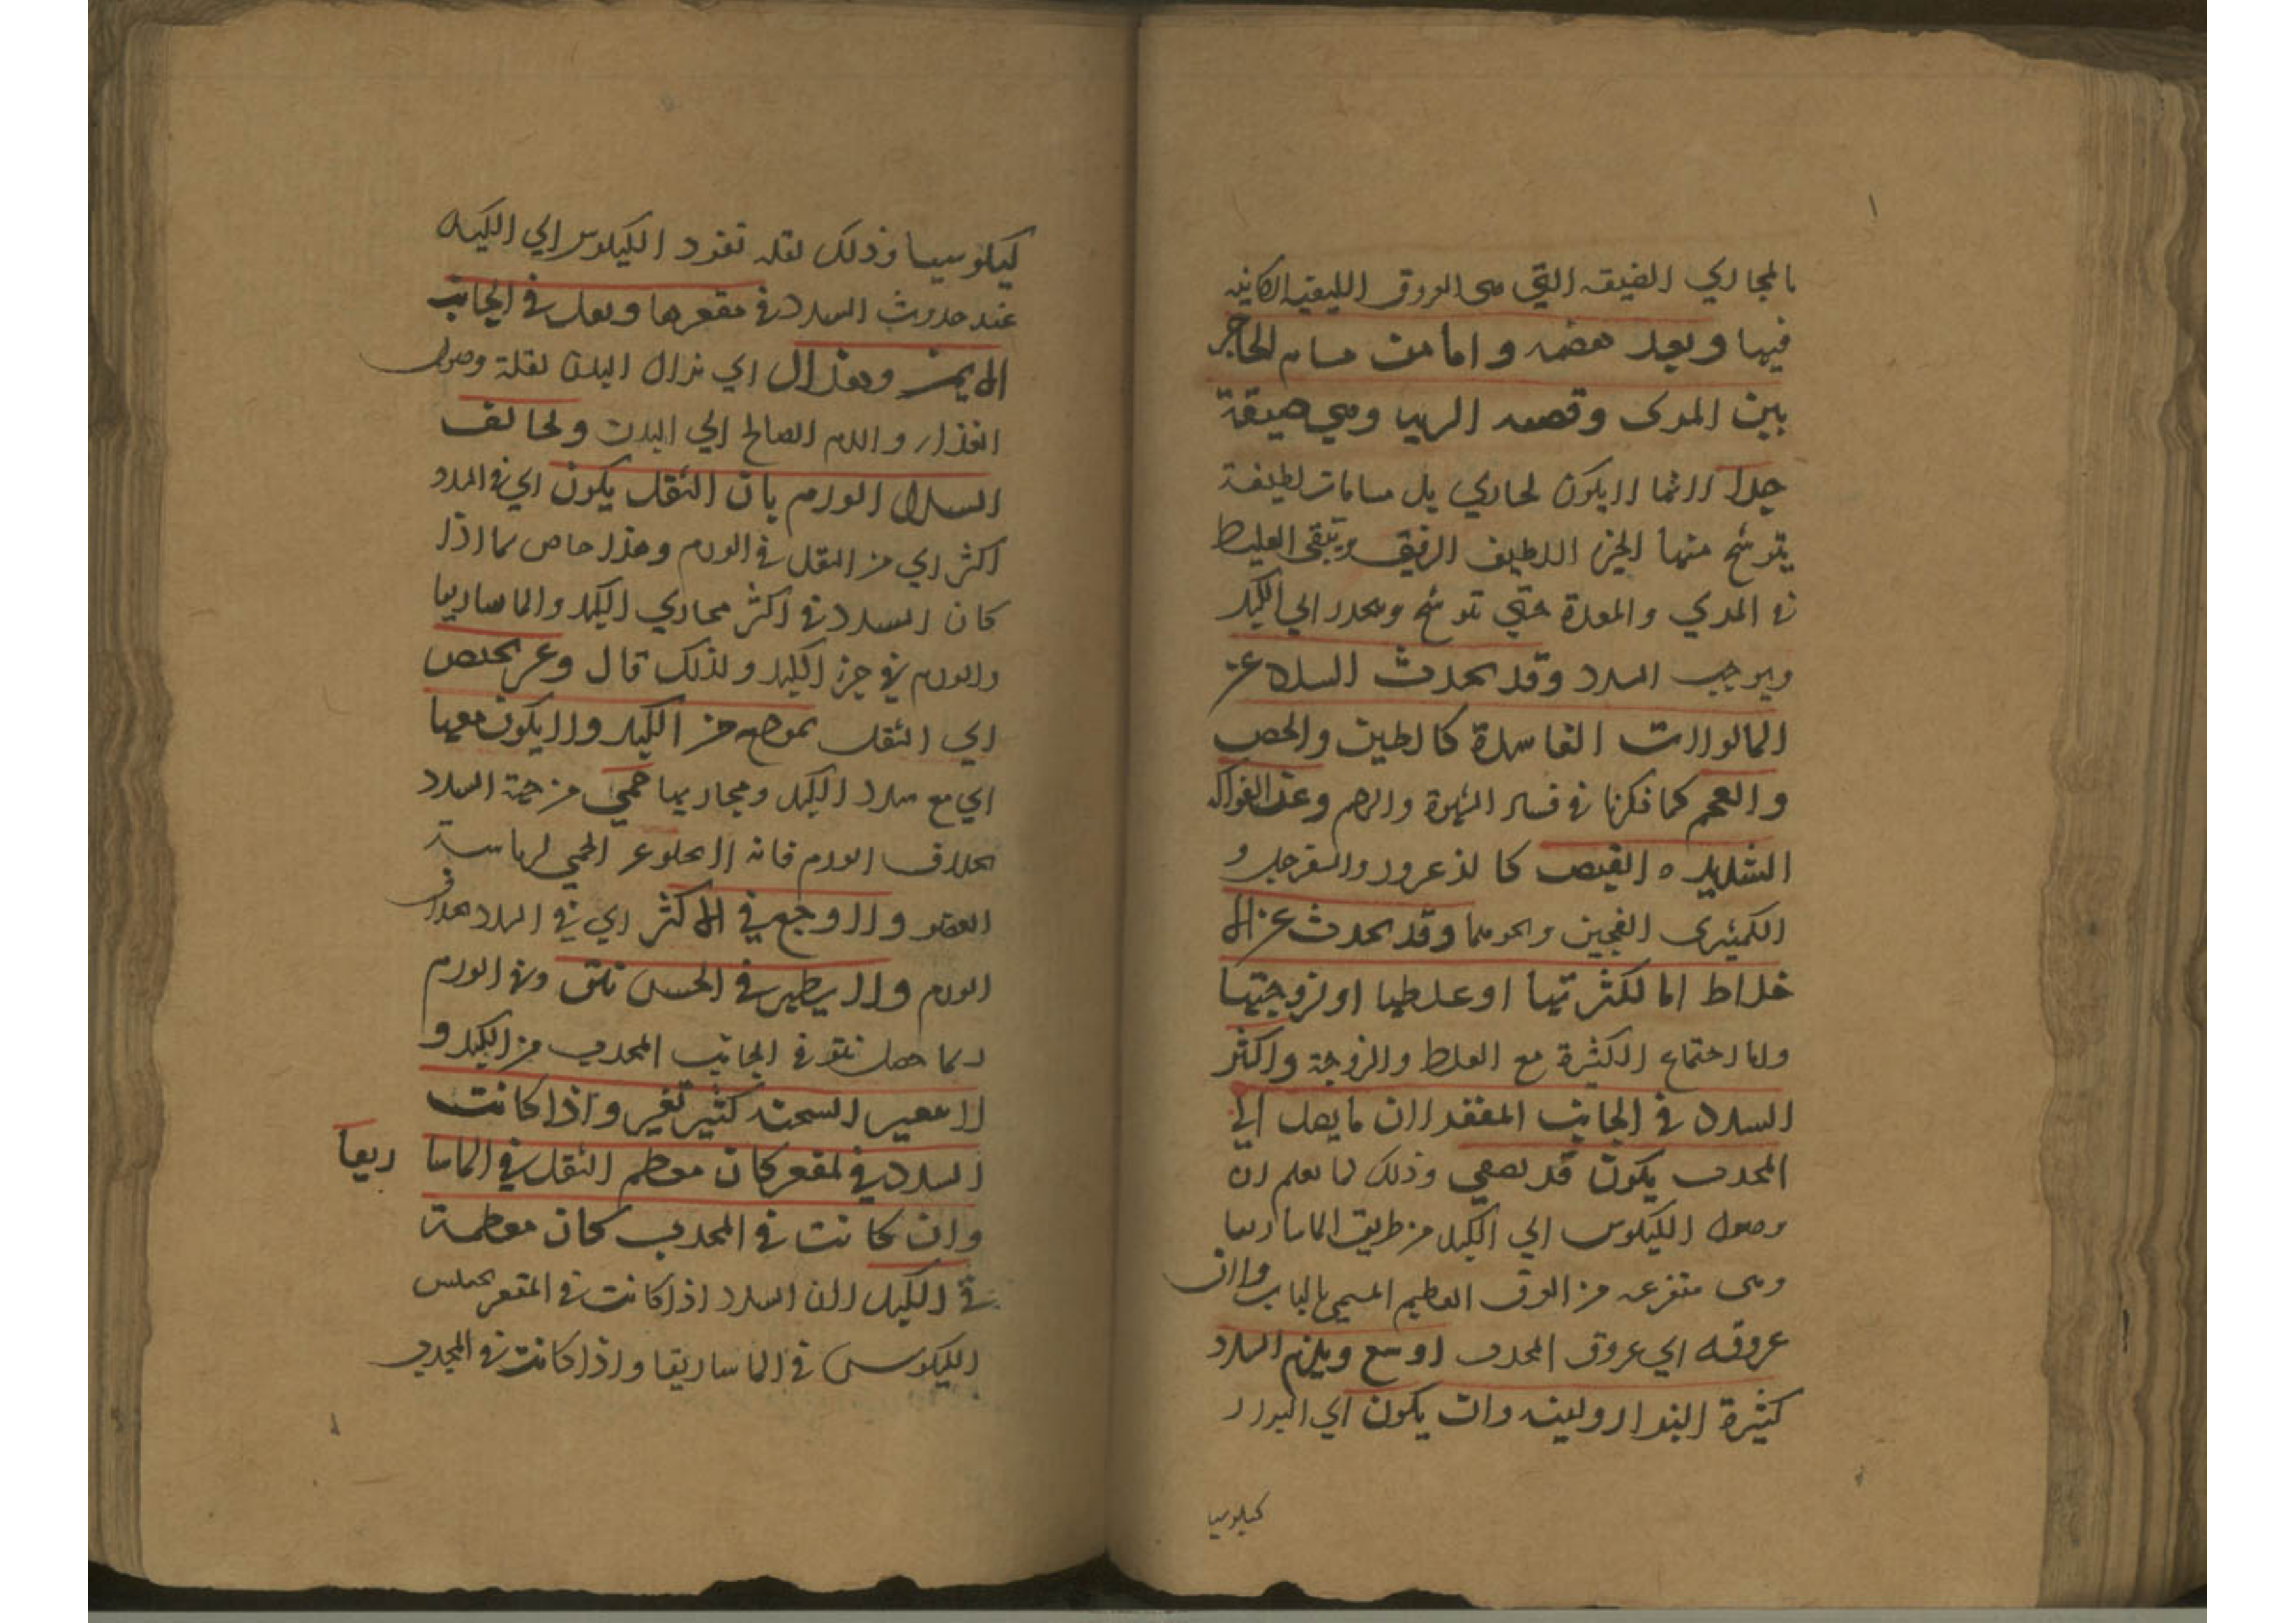 المجاري الضيقه التي هي العروق الليفيه الكاينه
فيها وبعد هضمه واما من مسام الحاجز
بين المعدى وقصبه الريا وهي ضيقة
جدا لانها لا يكون لمجاري بل مسامات لطيفة
يترشح منها الجز اللطيف الرقيق ويبقى الغليظ
في المدي والمعدة حتي تترشح وينحدر الي الكبد
ويوجب السدد وقد يحدث السدد عن
الماكولات الفاسدة كالطين والجص
والفحم كما ذكرنا في فساد الشهوة والهضم وعن الفواكه
الشديده القبض كالذعرور والسفرجل و
الكمثرى الفجين ونحوهما وقد يحدث عن الا
خلاط اما لكثرتها او غلظها او لزوجتها
واما اجتماع الكثرة مع الغلظ والزوجة واكثر
السدد في الجانب المقعر لان ما يصل الي
المحدب يكون قد تصفي وذلك لما تعلم ان
وصول الكيلوس الي الكبد من طريق الماساريقا
وهى متفرعه من العرق العظيم المسمي بالباب ولان
عروقه اي عروق المحدب اوسع ويلزم السدد
كثيرة البند ار ولينه وان يكون اي البراز
كيلوسيا
كيلوسيا وذلك لقله نفود الكيلوس الي الكبد
عند حدوث السدد في مقعرها وثقل في الجانب
الايمن وهزال اي هزال البدن لقلة وصول
الغذا والدم الصالح الي البدن ويخالف
السدد الورم بان الثقل يكون اي في السدد
اكثر اي من الثقل في الورم وهذا خاص بما اذا
كان السدد في اكثر مجاري الكبد والماساريقا
والورم في جز الكبد ولذلك قال وغير مختص
اي الثقل بموضع من الكبد ولا يكون معها
اي مع سدد الكبد ومجاريها حمي من جهة السدد
بخلاف الورم فانه لا يخلو عن الحمي لرياسة
العضو ولا وجع في الاكثر اي في السدد بخلاف
الورم ولا يظهر في الحس نتو وفي الورم
ربما حصل نتو في الجانب المحدب من الكبد و
لا يتغير السحنه كثير تغير واذا كانت
السدد في المقعر كان معظم الثقل في الماسا ريقا
وان كانت في المحدب كان معظمة
في الكبد لان السدد اذا كانت في المقعر يحتبس
الكيلوس في الماساريقا واذا كانت في المحدب